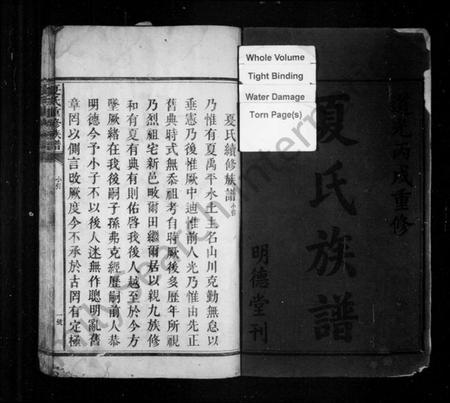 光緒丙戌重修
夏氏族譜
明德堂刊
Whole Volume
Tight Binding
Water Damage
Torn Page(s)
夏氏續修族譜小引
乃惟有夏禹平水土主名山川克勤無息以
垂憲乃後惟厥中迪惟前人光乃惟由先正
舊典時式無忝祖考自時厥後多歷年所視
乃烈祖宅新邑畋爾田繼爾居以親九族修
和有夏有典有則佑啓我後人越至於今方
墜厥緒在我後嗣子孫弗克經歷嗣前人恭
明德今予小子不以後人迷無作聰明亂舊
章罔以側言改厥度今不承於古罔有定極
夏氏重修族譜
小引
一號